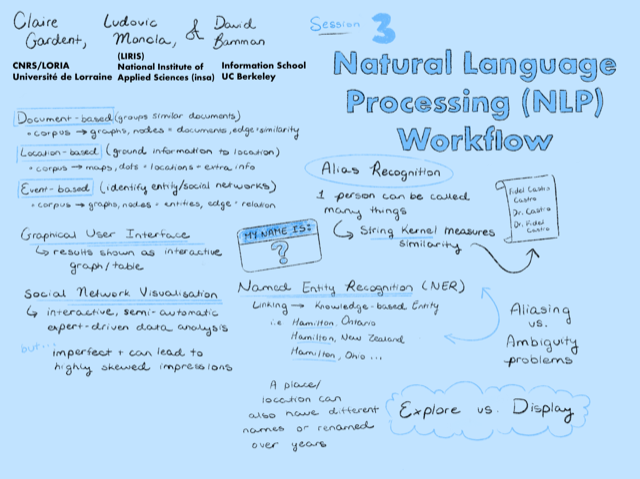 Claire Gardent,
CNRS/LORIA
Université de Lorraine
Ludovic Moncla,
(LIRIS)
National Institute of
Applied Sciences (insa)
& David Bamman
Information School
UC Berkeley
Session 3
Natural Language
Processing (NLP)
Workflow
Document-based (groups similar documents)
• corpus → graphs, nodes = documents, edge = similarity
Location-based (ground information to location)
• corpus → maps, dots = locations + extra info
Event-based (identify entity/social networks)
• corpus → graphs, nodes = entities, edge = relation
Graphical User Interface
↳ results shown as interactive
graph/table
Social Network Visualisation
↳ interactive, semi-automatic
expert-driven data analysis
but...
imperfect + can lead to
highly skewed impressions
MY NAME IS:
?
Alias Recognition
1 person can be called
many things
↳ String Kernel measures
similarity
Fidel Castro
Castro
Dr. Castro
Dr. Fidel
Castro
Named Entity Recognition (NER)
Linking → Knowledge-based Entity
i.e Hamilton, Ontario
Hamilton, New Zealand
Hamilton, Ohio ...
Aliasing
vs.
Ambiguity
problems
A place/
location can
also have different
names or renamed
over years
Explore vs. Display